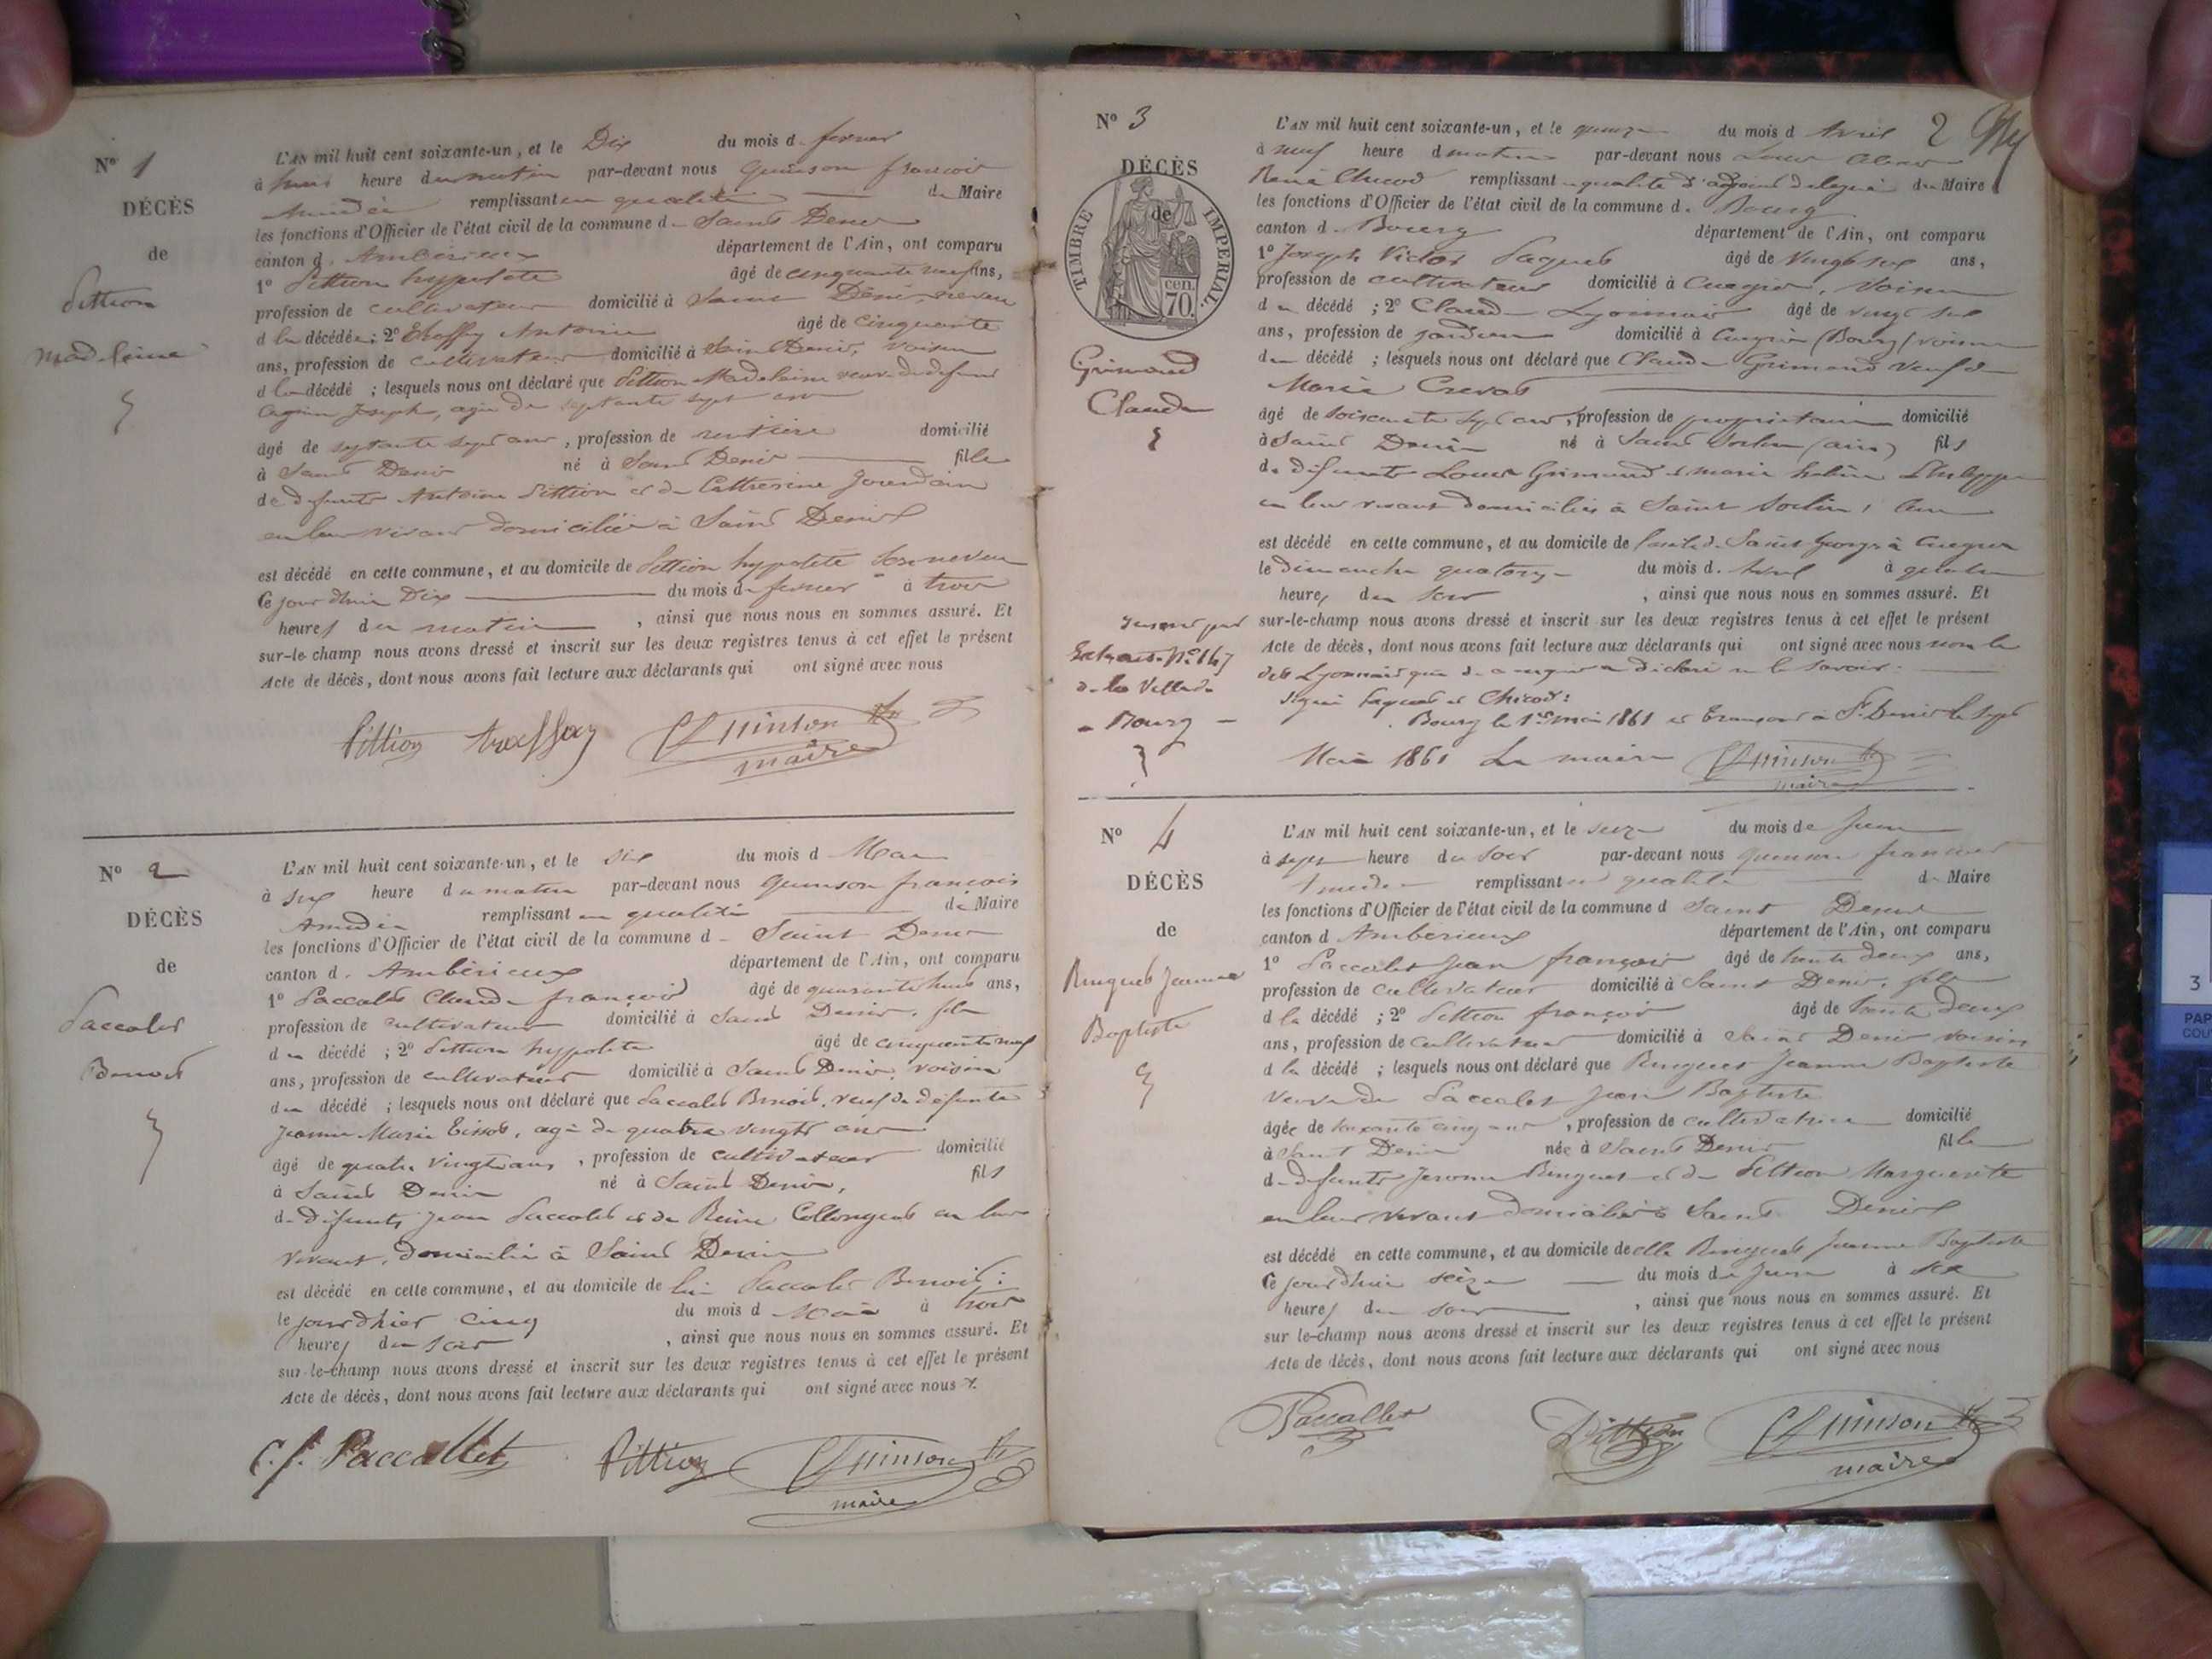 N° 1
DÉCÈS
de
Pittion
Madeleine
L'AN mil huit cent soixante-un, et le Dix du mois de fevrier
à huit heure du matin par-devant nous Quinson françois
Amédée remplissant en qualité de Maire
les fonctions d'Officier de l'état civil de la commune de Saint Denis
canton d'Ambérieux département de l'Ain, ont comparu
1° Pittion hypolite âgé de cinquante neuf ans,
profession de cultivateur domicilié à Saint Denis, neveu
d la décédée; 2° Antoine âgé de cinquante
ans, profession de cultivateur domicilié à Saint Denis, voisin
d la décédé ; lesquels nous ont déclaré que Pittion Madeleine veuve de defunt
Joseph, agée de septante sept ans
âgé de septante sept ans, profession de rentière domicilié
à Saint Denis né à Saint Denis fille
de defunts Antoine Pittion et de Catherine Jourdain
en leur vivant domiciliés à Saint Denis
est décédé en cette commune, et au domicile de Pittion hypolite son neveu
Ce jourdhui Dix du mois de fevrier à trois
heures du matin , ainsi que nous nous en sommes assuré. Et
sur-le-champ nous avons dressé et inscrit sur les deux registres tenus à cet effet le présent
Acte de décès, dont nous avons fait lecture aux déclarants qui ont signé avec nous
Pittion Quinson
maire
N° 2
DÉCÈS
de
Paccalet
Benoit
L'AN mil huit cent soixante-un, et le six du mois d Mai
à six heure du matin par-devant nous Quinson françois
Amédée remplissant en qualité de Maire
les fonctions d'Officier de l'état civil de la commune d Saint Denis
canton d'Ambérieux département de l'Ain, ont comparu
1° Paccalet Claude françois âgé de quarante huit ans,
profession de cultivateur domicilié à Saint Denis, fils
du décédé ; 2° Pittion hypolite âgé de cinquante neuf
ans, profession de cultivateur domicilié à Saint Denis, voisin
du décédé ; lesquels nous ont déclaré que Paccalet Benoit, veuf de défunte
Jeanne Marie Tissot, agé de quatre vingts ans
âgé de quatre vingts ans, profession de cultivateur domicilié
à Saint Denis né à Saint Denis, fils
de défunts Jean Paccalet et de Reine Collonges en leur
vivant, domicilié à Saint Denis
est décédé en cette commune, et au domicile de lui Paccalet Benoit;
le jourdhier cinq du mois d Mai à trois
heures du soir , ainsi que nous nous en sommes assuré. Et
sur-le-champ nous avons dressé et inscrit sur les deux registres tenus à cet effet le présent
Acte de décès, dont nous avons fait lecture aux déclarants qui ont signé avec nous
C. f. Paccallet Pittion Quinson
maire
2
N° 3
DÉCÈS
de
TIMBRE IMPERIAL.
cen.
70.
Grimand
Claude
Extrait N° 147
de la Ville de
Bourg
L'AN mil huit cent soixante-un, et le quinze du mois d Avril
à neuf heure d matin par-devant nous Louis
René Chicod remplissant en qualité d'adjoint délégué du Maire
les fonctions d'Officier de l'état civil de la commune d. Bourg
canton d. Bourg département de l'Ain, ont comparu
1° Joseph Victor Faguet âgé de vingt six ans,
profession de cultivateur domicilié à Cuegres, voisin
du décédé ; 2° Claude Lyonnais âgé de vingt six
ans, profession de domicilié à Cuegres (Bourg) voisin
du décédé ; lesquels nous ont déclaré que Claude Grimand veuf de
Marie
âgé de soixante sept ans, profession de propriétaire domicilié
à Saint Denis né à Saint Sorlin (ain) fils
de défunts Louis Grimand et marie Philippe
en leur vivant domiciliés à Saint Sorlin, Ain
est décédé en cette commune, et au domicile de Saint Georges à Cuegres
le dimanche quatorze du mois d. Avril à quatre
heures du soir , ainsi que nous nous en sommes assuré. Et
sur-le-champ nous avons dressé et inscrit sur les deux registres tenus à cet effet le présent
Acte de décès, dont nous avons fait lecture aux déclarants qui ont signé avec nous non le
dit Lyonnais qui de ce requis a déclaré ne le savoir.
Signé Faguet et Chicod:
Bourg le 1er mai 1861 et transcrit à St Denis le sept
Mai 1861 Le maire Quinson
maire
N° 4
DÉCÈS
de
Ringuet Jeanne
Baptiste
L'AN mil huit cent soixante-un, et le seize du mois de Juin
à sept heure du soir par-devant nous quinson francois
Amédée remplissant en qualité de Maire
les fonctions d'Officier de l'état civil de la commune d Saint Denis
canton d Amberieux département de l'Ain, ont comparu
1° Paccalet Jean françois âgé de trente deux ans,
profession de cultivateur domicilié à Saint Denis, fils
d la décédé ; 2° Pittion françois âgé de trente deux
ans, profession de cultivateur domicilié à Saint Denis voisin
d la décédé ; lesquels nous ont déclaré que Ringuet Jeanne Baptiste
veuve de Paccalet Jean Baptiste
âgée de soixante cinq ans, profession de cultivatrice domicilié
à Saint Denis née à Saint Denis fille
de defunts Jerome Ringuet et de Pittion Marguerite
en leur vivant domiciliés à Saint Denis
est décédé en cette commune, et au domicile de elle Ringuet Jeanne Baptiste
Ce jourdhui seize du mois de Juin à six
heures du soir , ainsi que nous nous en sommes assuré. Et
sur le-champ nous avons dressé et inscrit sur les deux registres tenus à cet effet le présent
Acte de décès, dont nous avons fait lecture aux déclarants qui ont signé avec nous
Paccallet Pittion Quinson
maire
3
PAP
COU